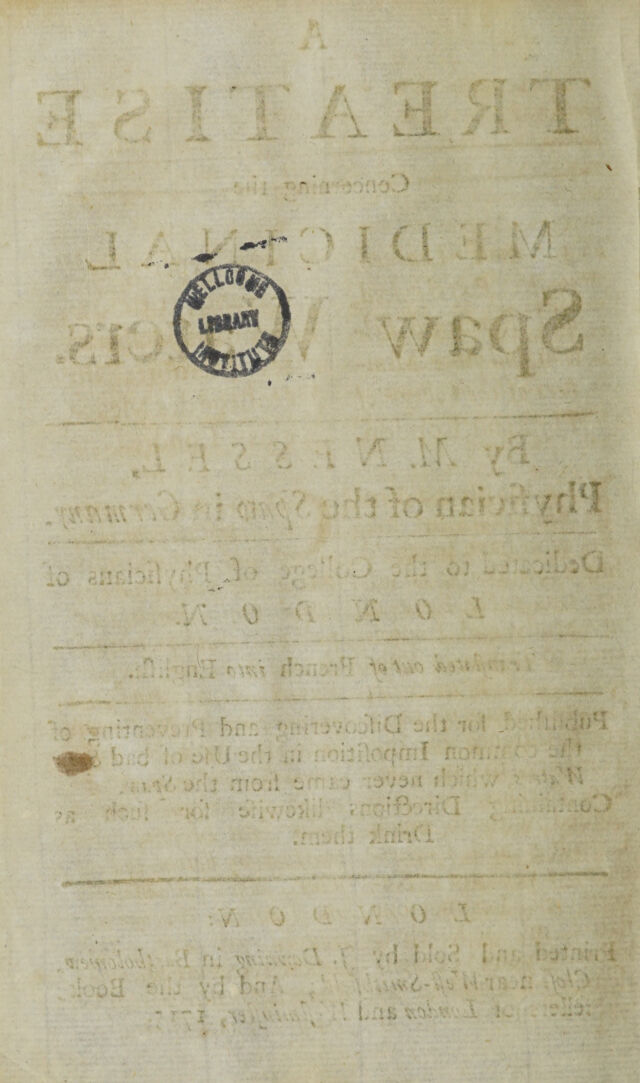 A
TREATISE
Concerning the
MEDICINAL
Spaw Waters.
WELLCOME
LIBRARY
INSTITUTE
By M. NESSEL,
Phyſician of the Spaw in Germany.
Dedicated to the College of Phyſicians of
LONDON.
Tranſlated out of French into Engliſh.
Publiſhed for the Diſcovering and Preventing of
the common Impoſition in the Uſe of bad
Waters which never came from the Spaw.
Containing Directions likewiſe for ſuch as
Drink them.
LONDON:
Printed and Sold by J. Downing in Bartholomew-
Cloſe near Weſt-Smithfield; And by the Book-
ſellers of London and Weſtminſter,